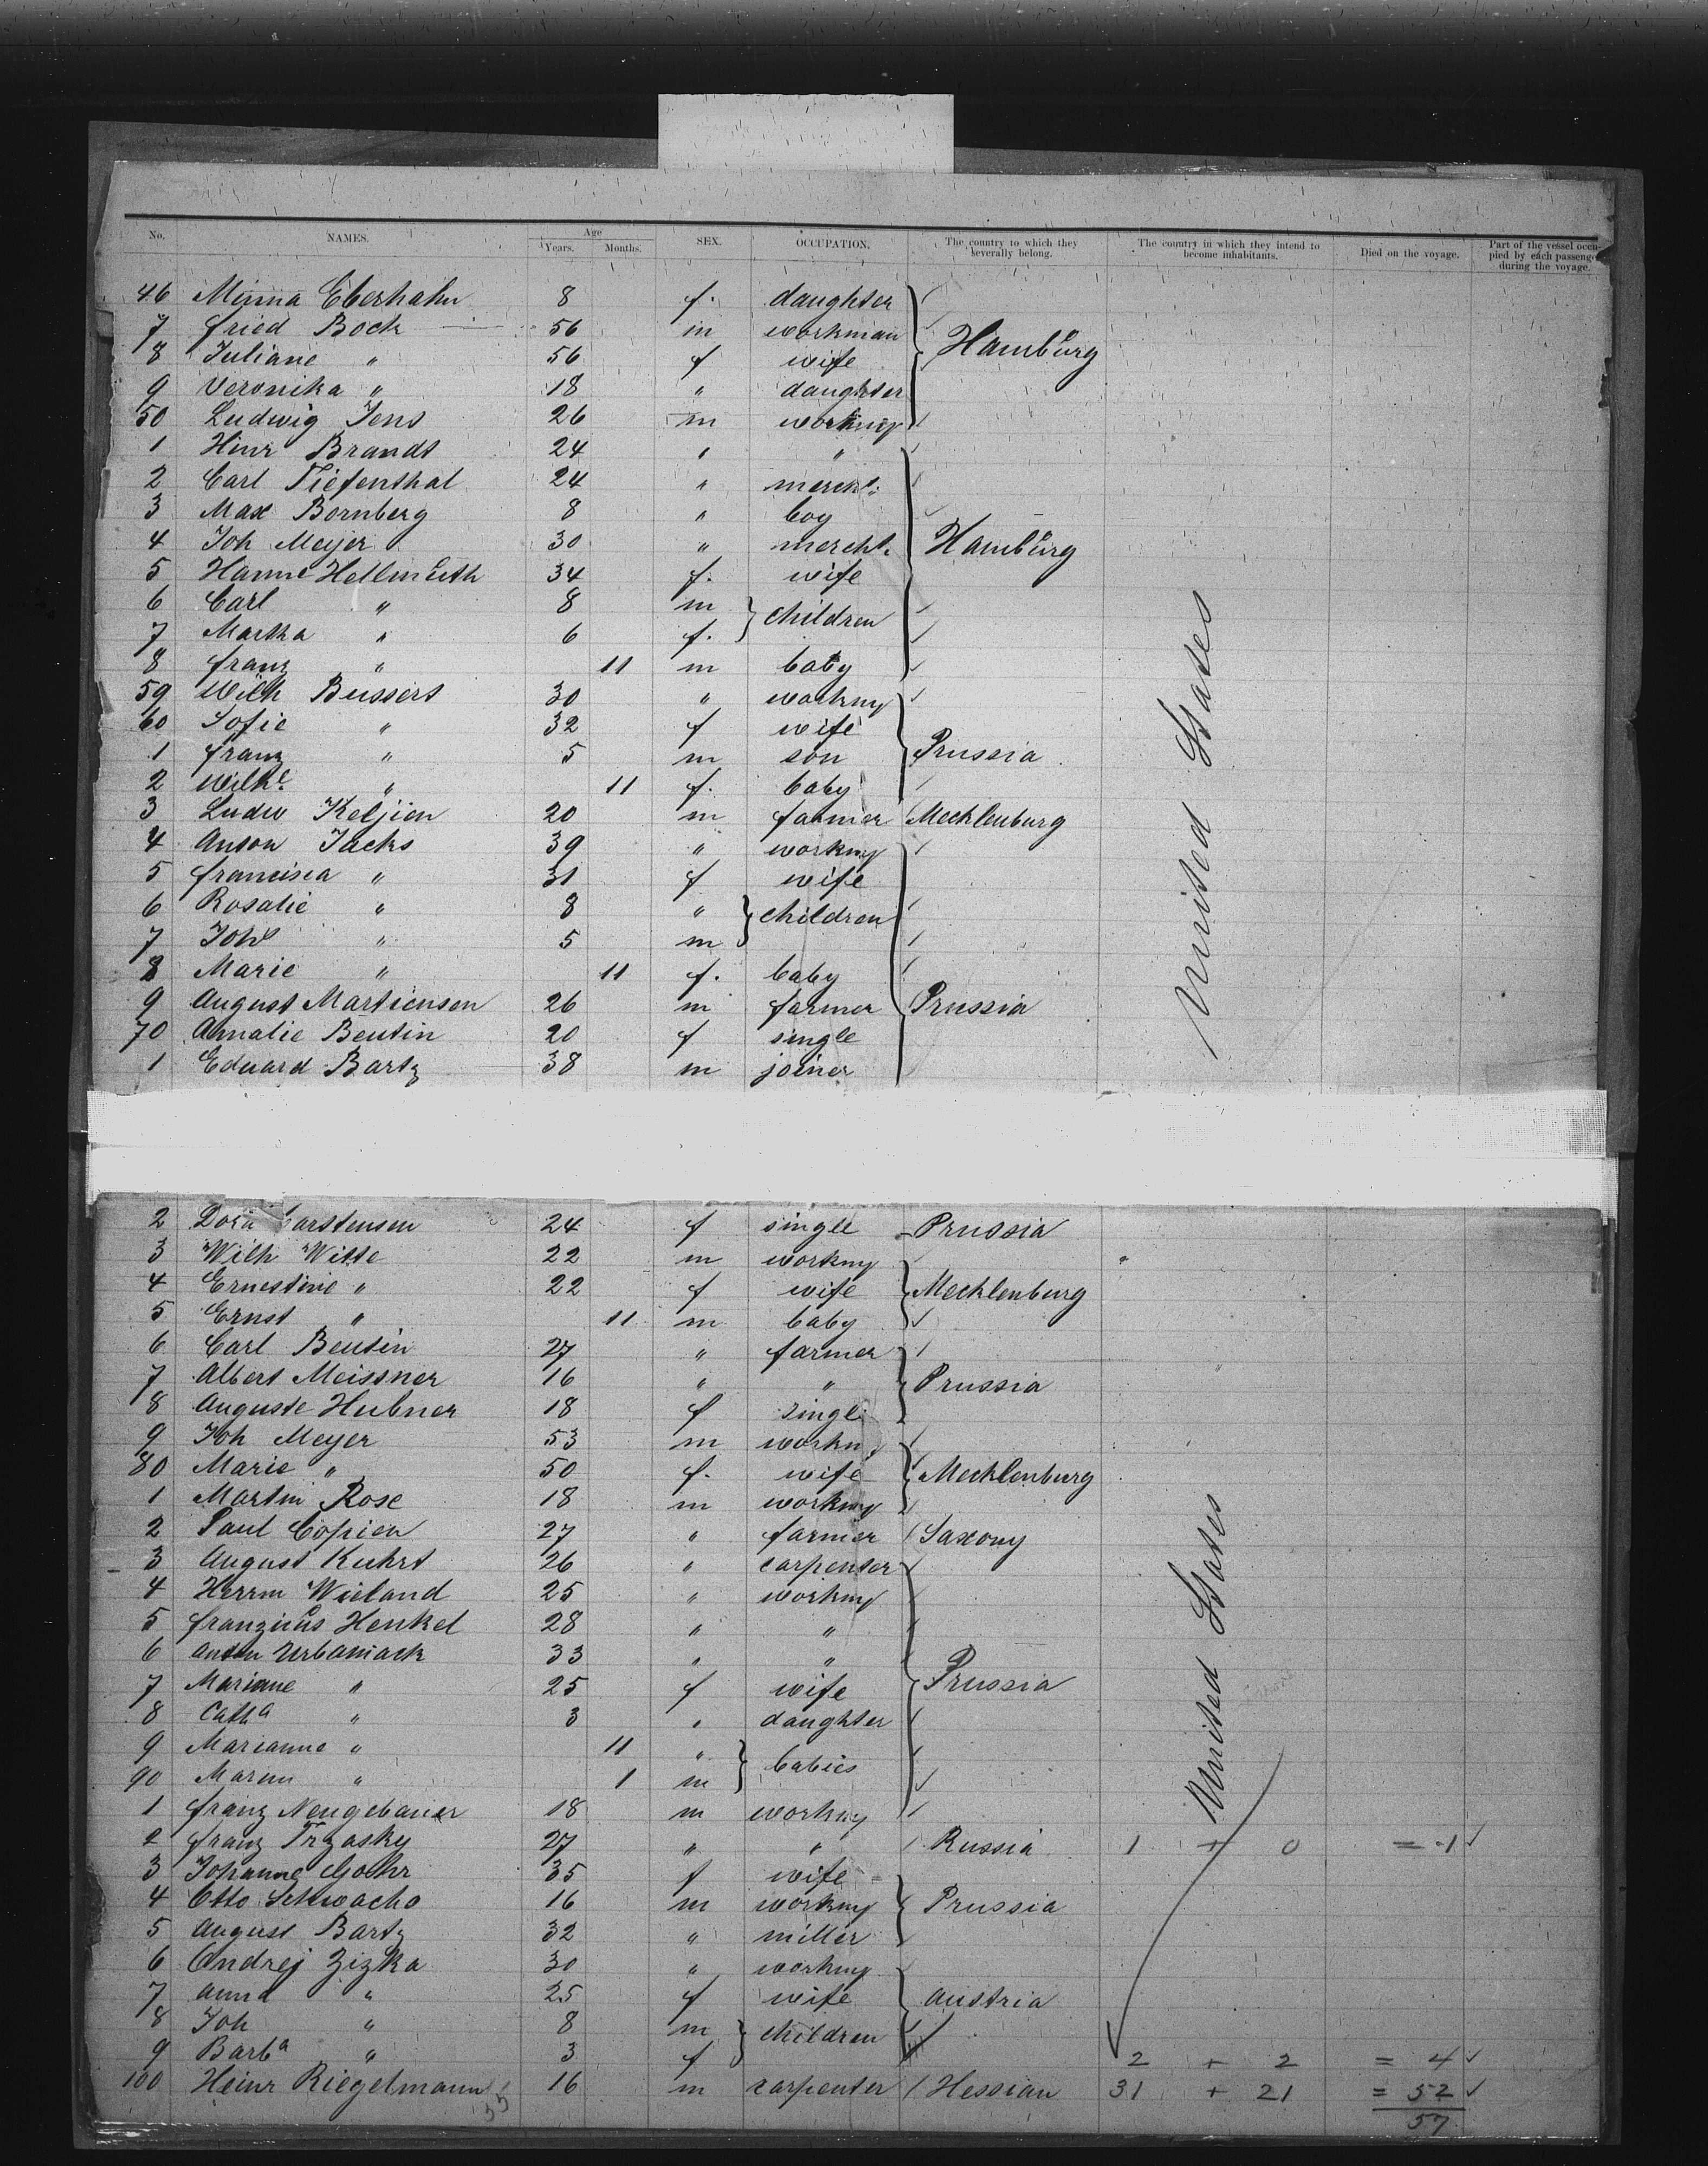 No. NAMES. Age Years. Months. SEX. OCCUPATION. The country to which they severally belong. The country in which they intend to become inhabitants. Died on the voyage. Part of the vessel occupied by each passenger during the voyage.
46 Minna Eberhahn 8 f. daughter
7 Fried Bock 56 m workman Hamburg
8 Juliane " 56 f wife
9 Veronika " 18 " daughter
50 Ludwig Jens 26 m workmg
1 Hinr Brandt 24 " "
2 Carl Tiefenthal 24 " mercht.
3 Max Bernberg 8 " boy
4 Joh Meyer 30 " mercht. Hamburg
5 Hanne Hellmuth 34 f. wife
6 Carl " 8 m children
7 Martha " 6 f.
8 Franz " 11 m baby
59 Wilh Bussert 30 " workmg
60 Sofie " 32 f wife
1 Franz " 5 m son Prussia
2 Wilhe " 11 f. baby
3 Ludw Keljien 20 m farmer Mecklenburg
4 Anton Jacks 39 " workmg
5 Francisca " 31 f wife
6 Rosalie " 8 " children
7 Joh " 5 m
8 Marie " 11 f. baby
9 August Martiensen 26 m farmer Prussia
70 Amalie Beutin 20 f single
1 Eduard Bartz 38 m joiner
United States
2 Dora Carstensen 24 f single Prussia
3 Wilh Witte 22 m workmg
4 Ernestine " 22 f wife Mecklenburg
5 Ernst " 11 m baby
6 Carl Beutin 27 " farmer
7 Albert Meissner 16 " " Prussia
8 Auguste Hubner 18 f single
9 Joh Meyer 53 m workm
80 Marie " 50 f. wife Mecklenburg
1 Martin Rose 18 m workmg
2 Paul Copien 27 " farmer Saxony
3 August Kuhrt 26 " carpenter
4 Herrm Wieland 25 " workmg
5 Henkel 28 " "
6 Anton Urbaniack 33 " "
7 Mariane " 25 f wife Prussia
8 Catha " 3 " daughter
9 Marianne " 11 " babies
90 " 1 m
1 Franz Neugebauer 18 m workmg
2 Franz Trzasky 27 " " Russia 1 + 0 = 1
3 Johanne Gohr 35 f wife
4 Otto Schwacho 16 m workmg Prussia
5 August Bartz 32 " miller
6 Andrej Zizka 30 " workmg
7 Anna " 25 f wife Austria
8 Joh " 8 m children
9 Barba " 3 f 2 + 2 = 4
100 Heinr Riegelmann 16 m carpenter Hessian 31 + 21 = 52
55 57
United States